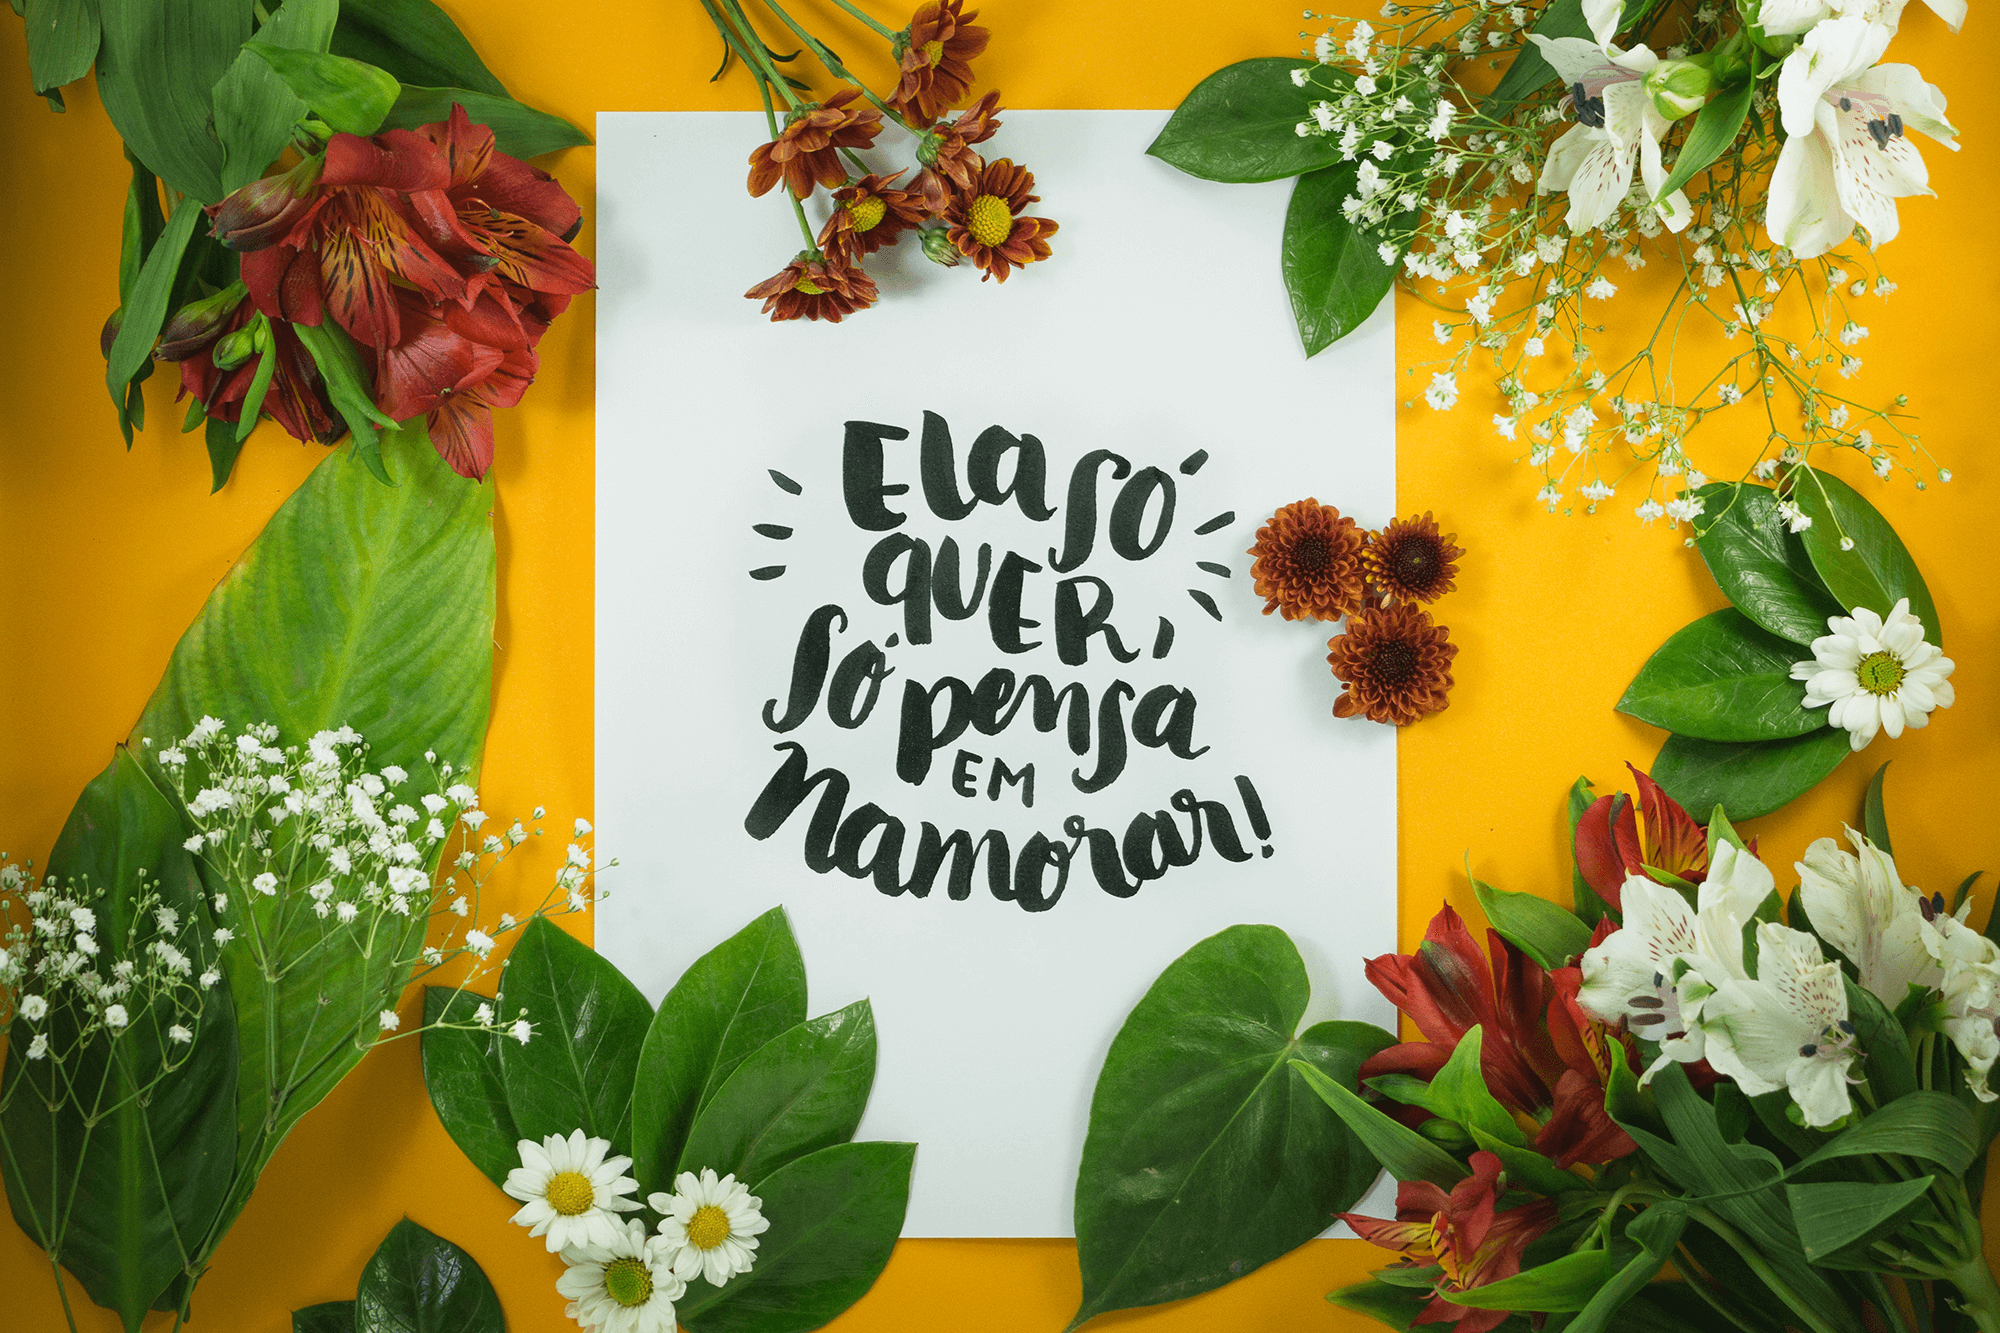 Ela só
quer,
só pensa
em
namorar!